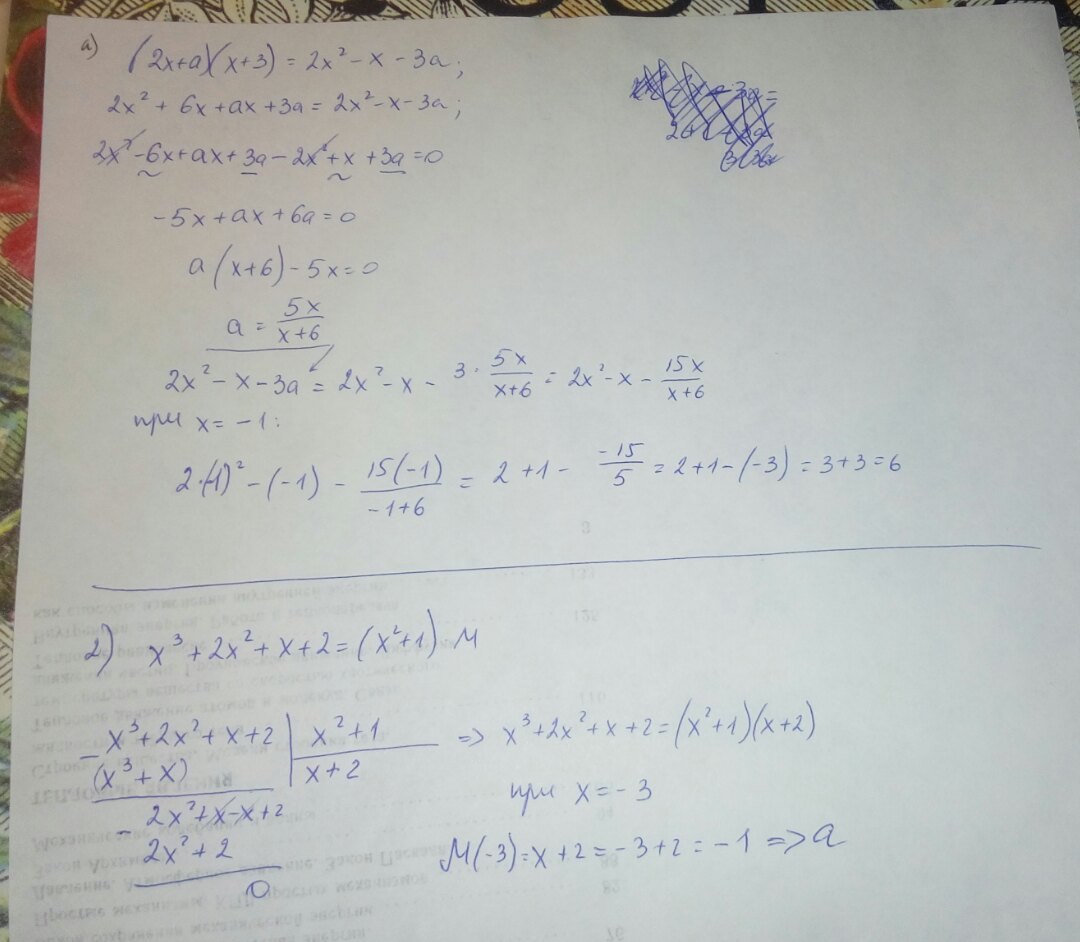 а) (2x+a)(x+3) = 2x² - x - 3a;
2x² + 6x + ax + 3a = 2x² - x - 3a;
2x² - 6x + ax + 3a - 2x² + x + 3a = 0
-5x + ax + 6a = 0
a(x+6) - 5x = 0
a = 5x/(x+6)
2x² - x - 3a = 2x² - x - 3 · 5x/(x+6) = 2x² - x - 15x/(x+6)
при x = -1:
2·(-1)² - (-1) - 15(-1)/(-1+6) = 2 + 1 - -15/5 = 2+1-(-3) = 3+3 = 6
2) x³ + 2x² + x + 2 = (x²+1) M
- x³ + 2x² + x + 2 | x² + 1 => x³ + 2x² + x + 2 = (x²+1)(x+2)
(x³ + x) | x + 2
- 2x² + x - x + 2 при x = -3
2x² + 2 M(-3) = x + 2 = -3 + 2 = -1 => a
0